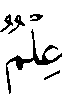 عِلْمٌ